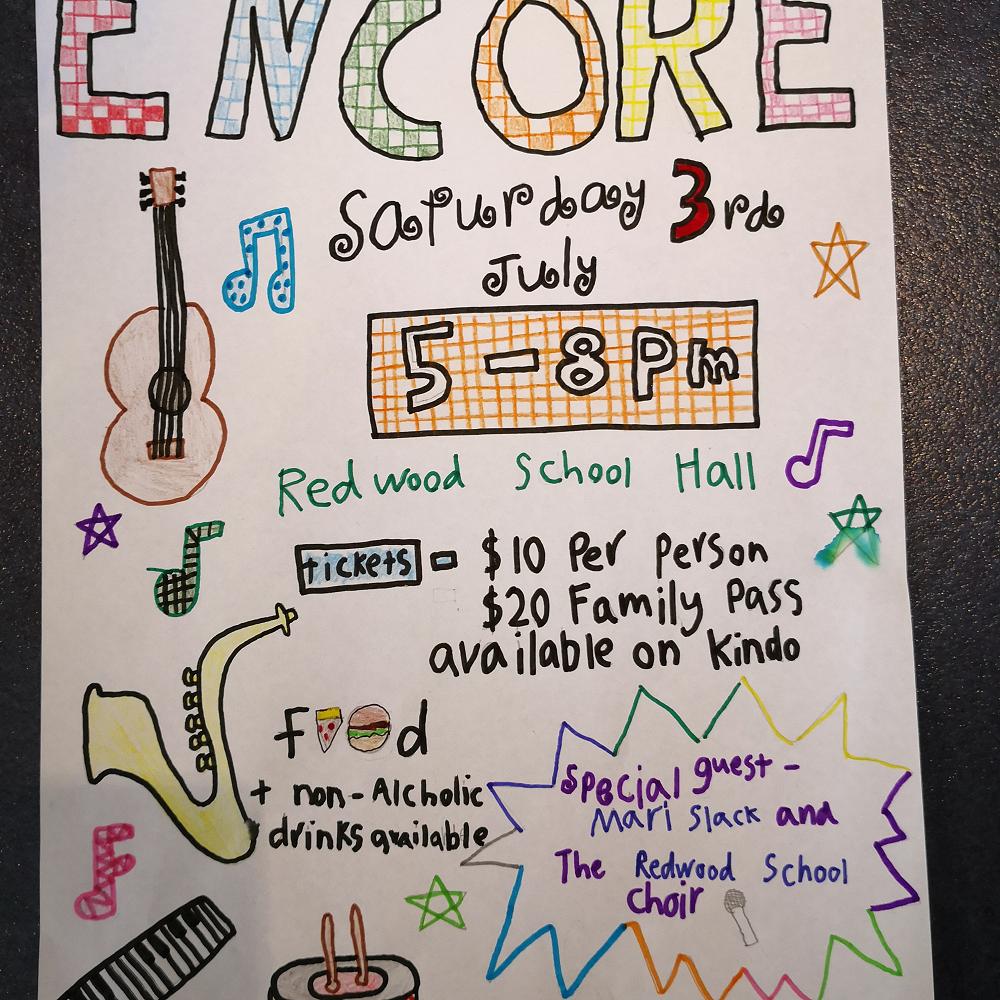 ENCORE
Saturday 3rd
July
5-8Pm
Redwood School Hall
tickets - $10 Per Person
$20 Family Pass
available on Kindo
food
+ non-Alcholic
drinks available
Special guest -
Mari Slack and
The Redwood School
choir